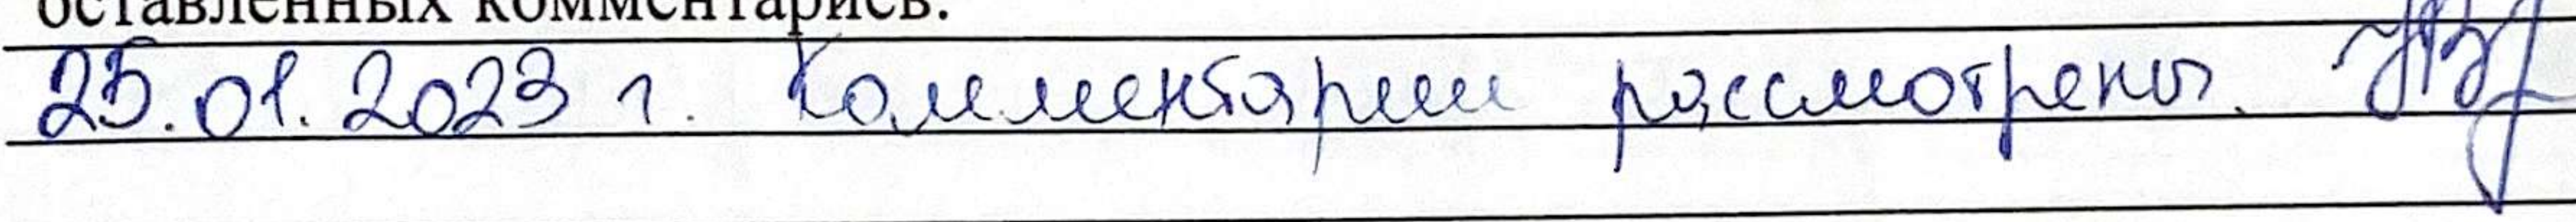 оставленных комментариев.
25.01.2023 г. Комментарии рассмотрены.